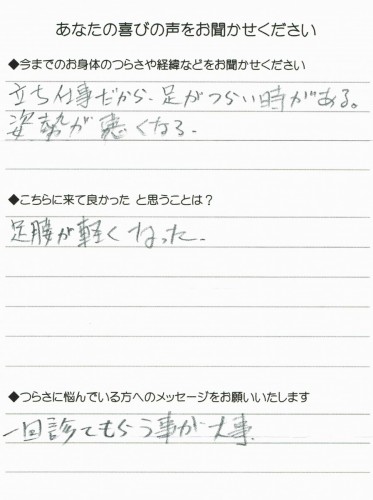 あなたの喜びの声をお聞かせください
◆今までのお身体のつらさや経緯などをお聞かせください
立ち仕事だから、足がつらい時がある。
姿勢が悪くなる。
◆こちらに来て良かった と思うことは？
足腰が軽くなった。
◆つらさに悩んでいる方へのメッセージをお願いいたします
一回診てもらう事が大事。